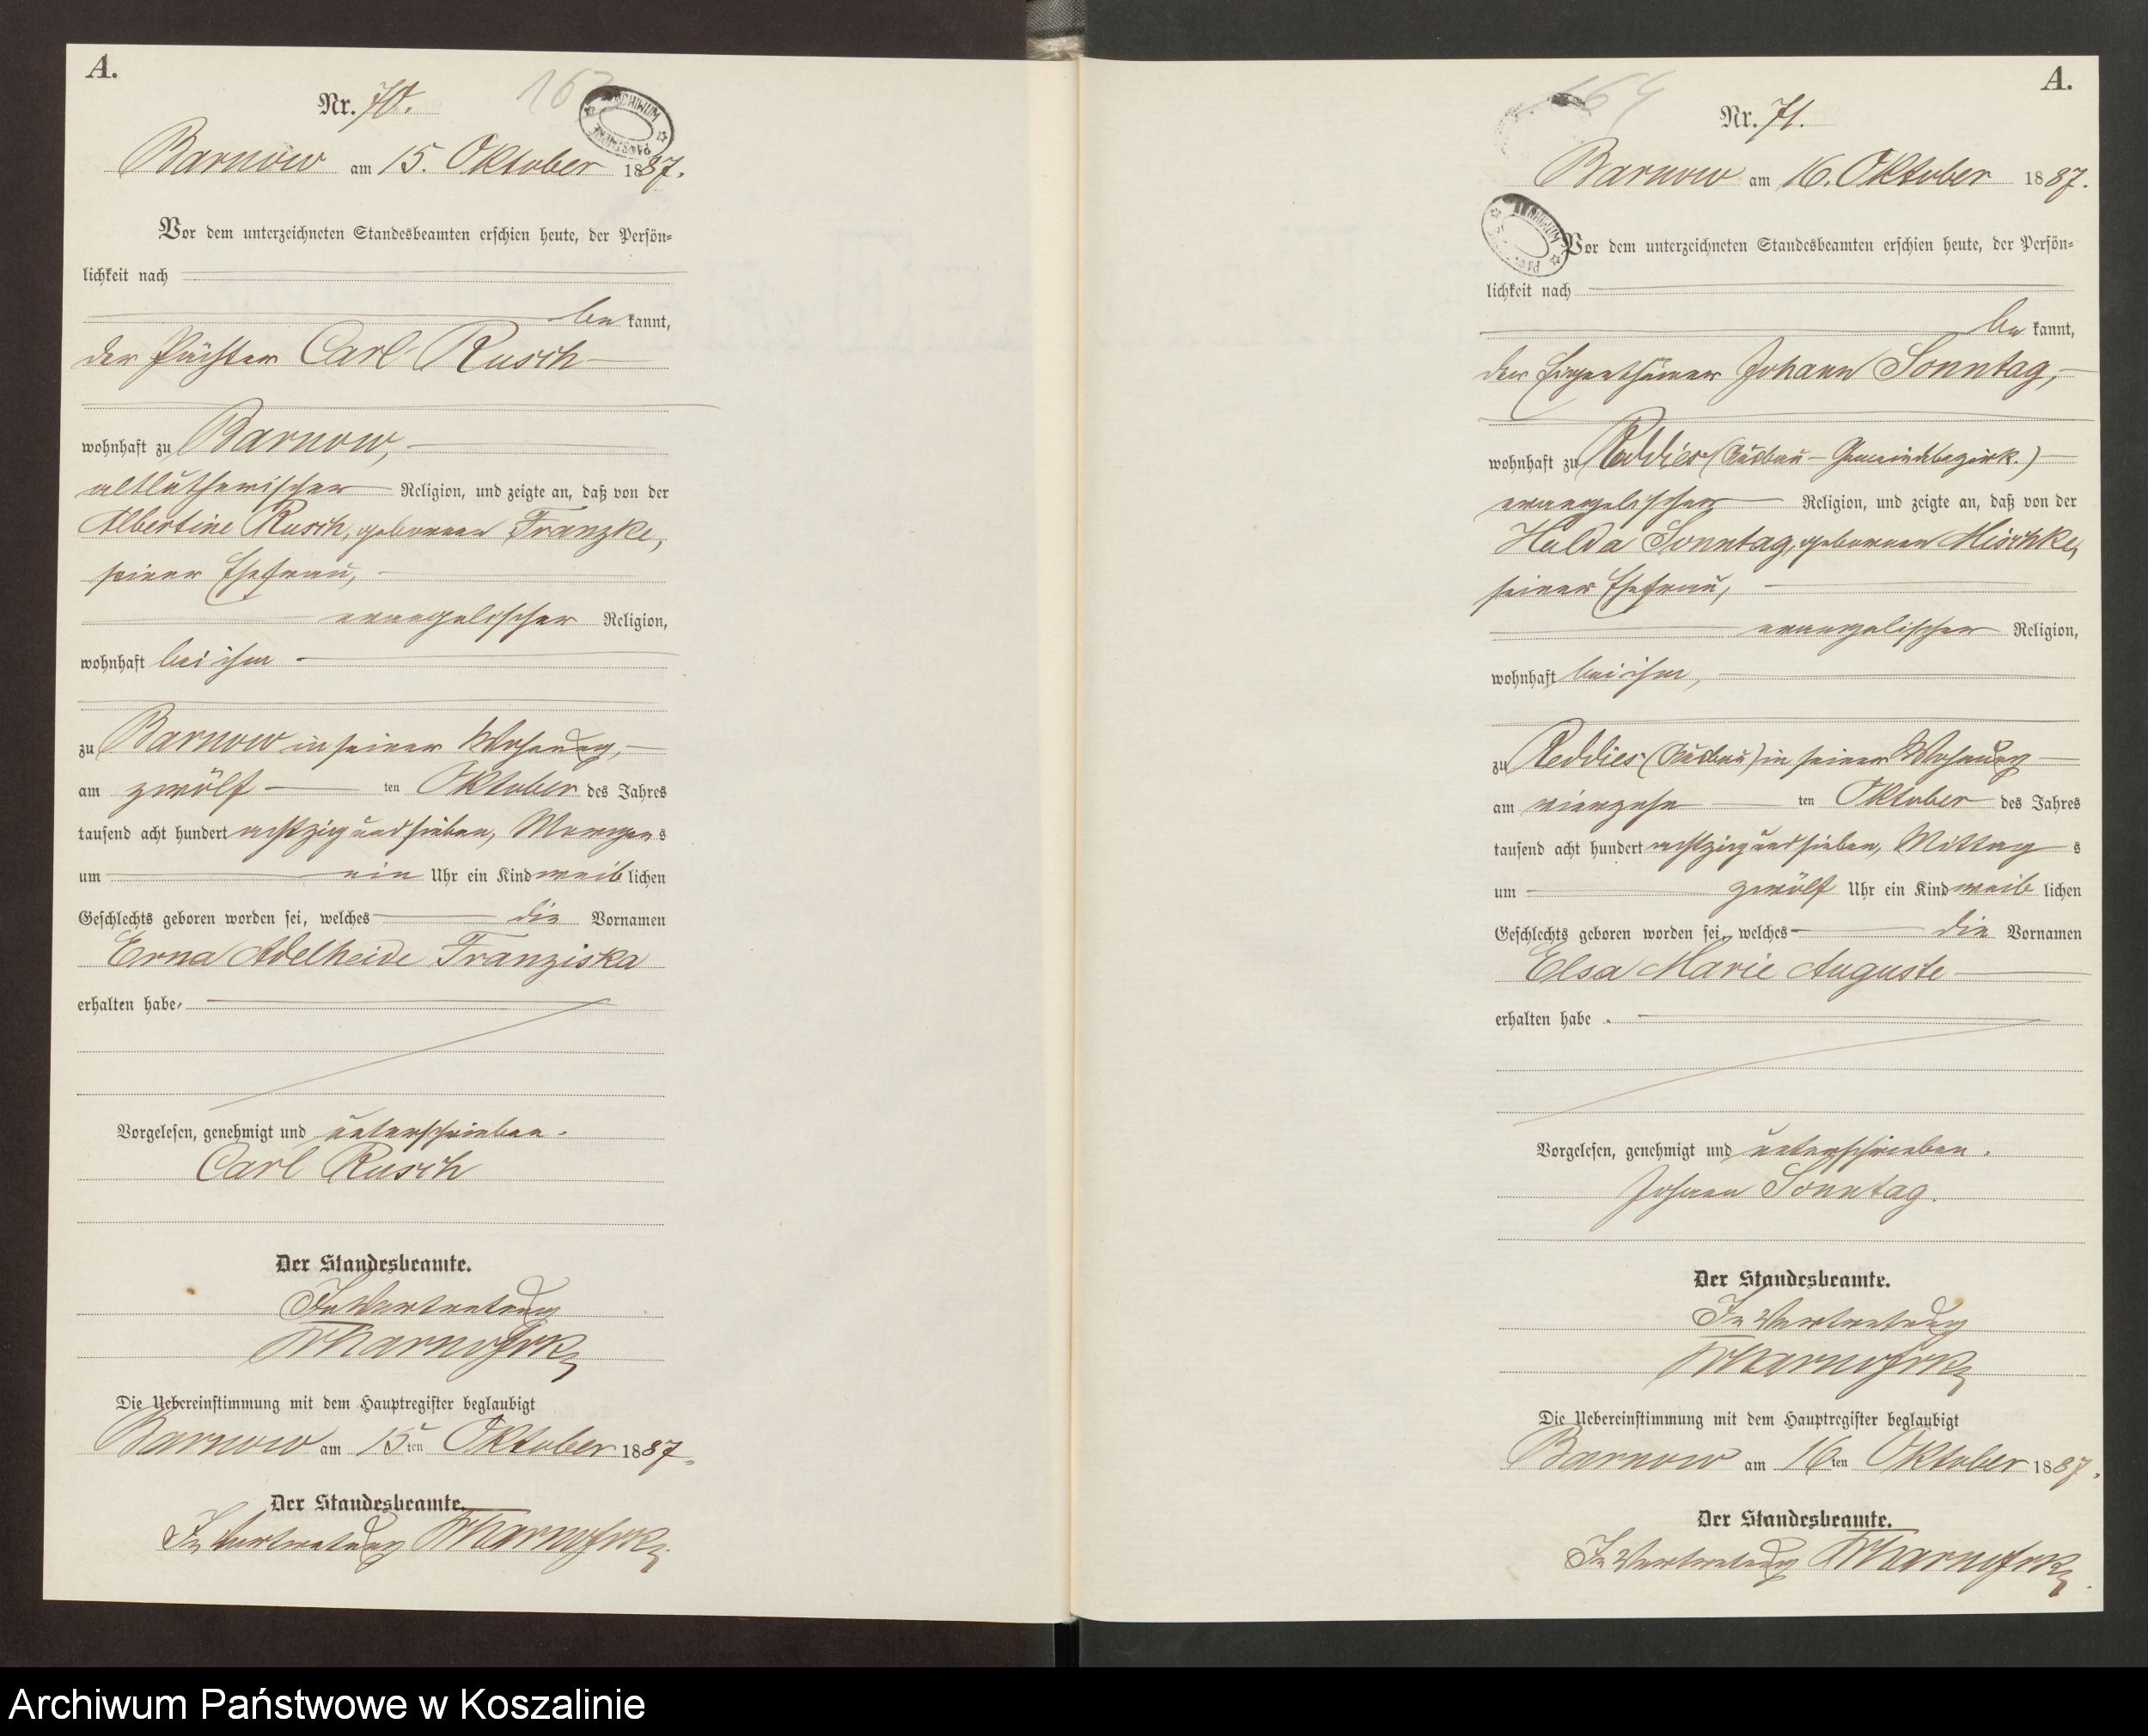 A.
Nr. 70.
163
ARCHIWUM
PAŃSTWOWE
Barnow am 15. Oktober 1887.
Vor dem unterzeichneten Standesbeamten erschien heute, der Persön=
lichkeit nach
be kannt,
der Pächter Carl Rusch
wohnhaft zu Barnow,
altlutherischer Religion, und zeigte an, daß von der
Albertine Rusch, geborenen Franzke,
seiner Ehefrau,
evangelischer Religion,
wohnhaft bei ihm
zu Barnow in seiner Wohnung,
am zwölf ten Oktober des Jahres
tausend acht hundert achtzig und sieben, Morgens
um ein Uhr ein Kind weiblichen
Geschlechts geboren worden sei, welches die Vornamen
Erna Adelheide Franziska
erhalten habe.
Vorgelesen, genehmigt und unterschrieben.
Carl Rusch
Der Standesbeamte.
In Vertretung
Die Uebereinstimmung mit dem Hauptregister beglaubigt
Barnow am 15ten Oktober 1887.
Der Standesbeamte.
In Vertretung
A.
164
Nr. 71.
Barnow am 16. Oktober 1887.
ARCHIWUM
Vor dem unterzeichneten Standesbeamten erschien heute, der Persön=
lichkeit nach
be kannt,
der Eigenthümer Johann Sonntag,
wohnhaft zu Reddies (Ausbau – Gemeindebezirk.)
evangelischer Religion, und zeigte an, daß von der
Hulda Sonntag, geborenen Mischke,
seiner Ehefrau,
evangelischer Religion,
wohnhaft bei ihm,
zu Reddies (Ausbau) in seiner Wohnung
am vierzehn ten Oktober des Jahres
tausend acht hundert achtzig und sieben, Mittag s
um zwölf Uhr ein Kind weib lichen
Geschlechts geboren worden sei, welches die Vornamen
Elsa Marie Auguste
erhalten habe.
Vorgelesen, genehmigt und unterschrieben.
Johann Sonntag.
Der Standesbeamte.
In Vertretung
Die Uebereinstimmung mit dem Hauptregister beglaubigt
Barnow am 16ten Oktober 1887.
Der Standesbeamte.
In Vertretung
Archiwum Państwowe w Koszalinie